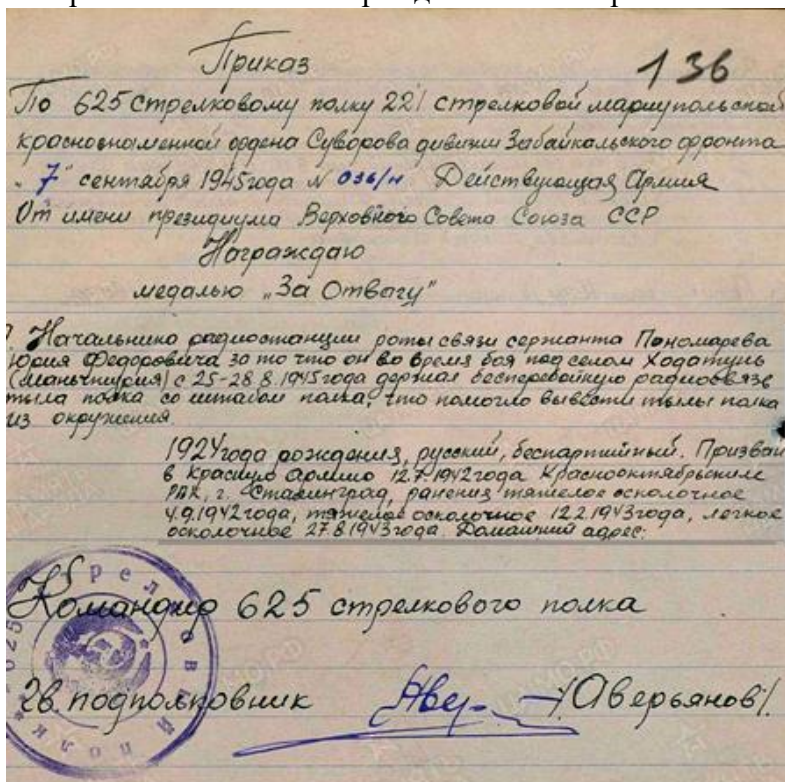 Приказ
136
По 625 стрелковому полку 221 стрелковой мариупольской
краснознаменной ордена Суворова дивизии Забайкальского фронта
„7" сентября 1945 года № 036/н Действующая Армия
От имени президиума Верховного Совета Союза ССР
Награждаю
медалью „За Отвагу"
Начальника радиостанции роты связи сержанта Пономарева
Юрия Федоровича за то что он во время боя под селом Ходатунь
(Маньчжурия) с 25-28.8.1945 года держал бесперебойную радиосвязь
тыла полка со штабом полка, что помогло вывести тылы полка
из окружения.
1924 года рождения, русский, беспартийный. Призван
в Красную Армию 12.7.1942 года Краснооктябрьским
РВК, г. Сталинград, ранения тяжелое осколочное
4.9.1942 года, тяжелое осколочное 12.2.1943 года, легкое
осколочное 27.8.1943 года. Домашний адрес:
Командир 625 стрелкового полка
Гв. подполковник /Аверьянов/.
625 Стрелковый полк